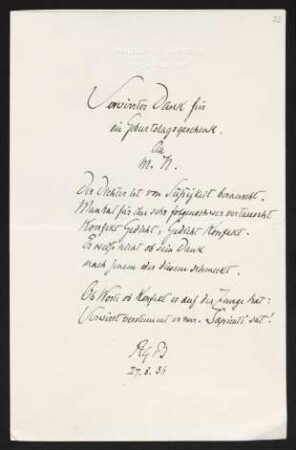 22
Verwirrter Dank für
ein Geburtstagsgeschenk.
An
M. N.
Der Dichter ist von Süßigkeit berauscht.
Man hat für ihn sehr folgenschwer vertauscht
Konfekt Gedicht, Gedicht Konfekt.
Er weiß nicht ob sein Dank
nach jenem oder diesem schmeckt.
Ob Wort ob Konfekt er auf der Zunge hat:
Verwirrt verstummt er nur. Sapienti sat!
RGB
27.8.34